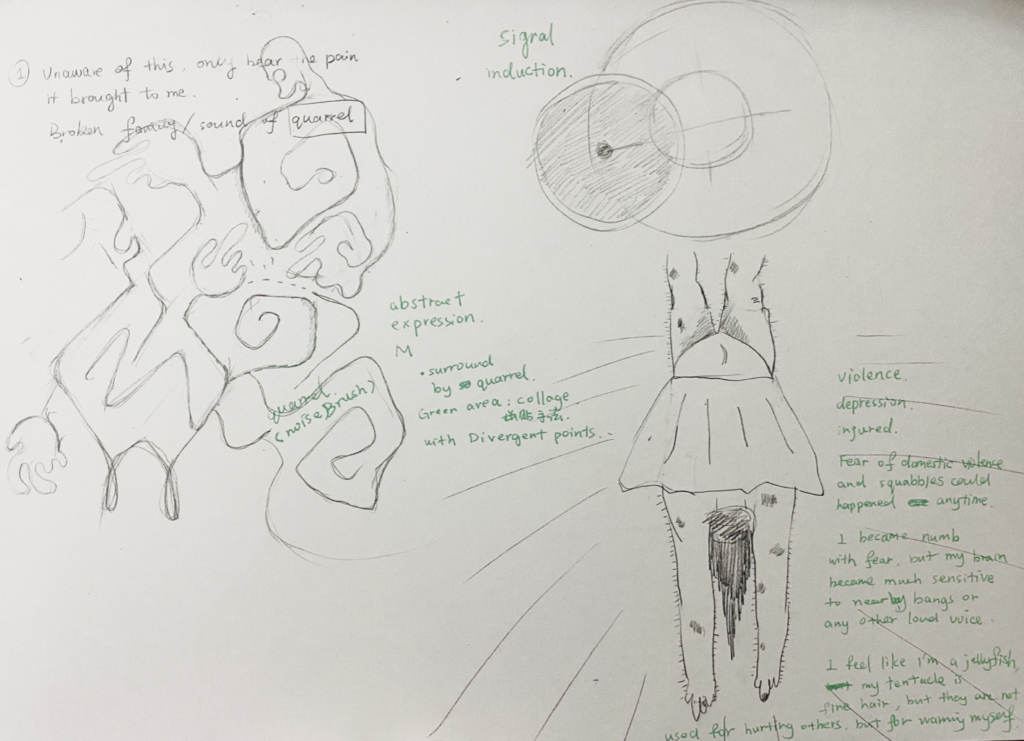 ① Unaware of this, only hear the pain
it brought to me.
Broken family / sound of quarrel
Signal
induction.
abstract
expression.
M
• surround
by quarrel.
Green area: collage
拼贴手法.
with Divergent points..
quarrel.
(noiseBrush)
violence.
depression.
injured.
Fear of domestic violence
and squabbles could
happened anytime.
I became numb
with fear, but my brain
became much sensitive
to nearby bangs or
any other loud voice.
I feel like I'm a jellyfish,
my tentacle is
fine hair, but they are not
used for hurting others, but for warning myself.